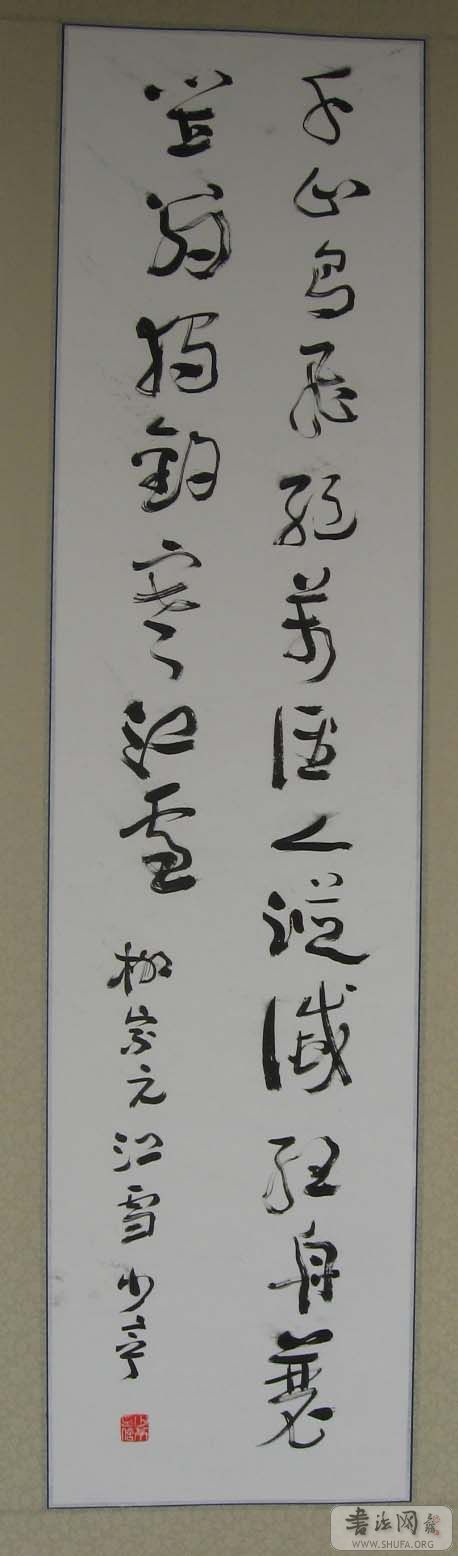 千山鳥飛絕萬徑人蹤滅孤舟蓑
笠翁獨釣寒江雪
柳宗元江雪少亭
書法网
WWW.SHUFA.ORG